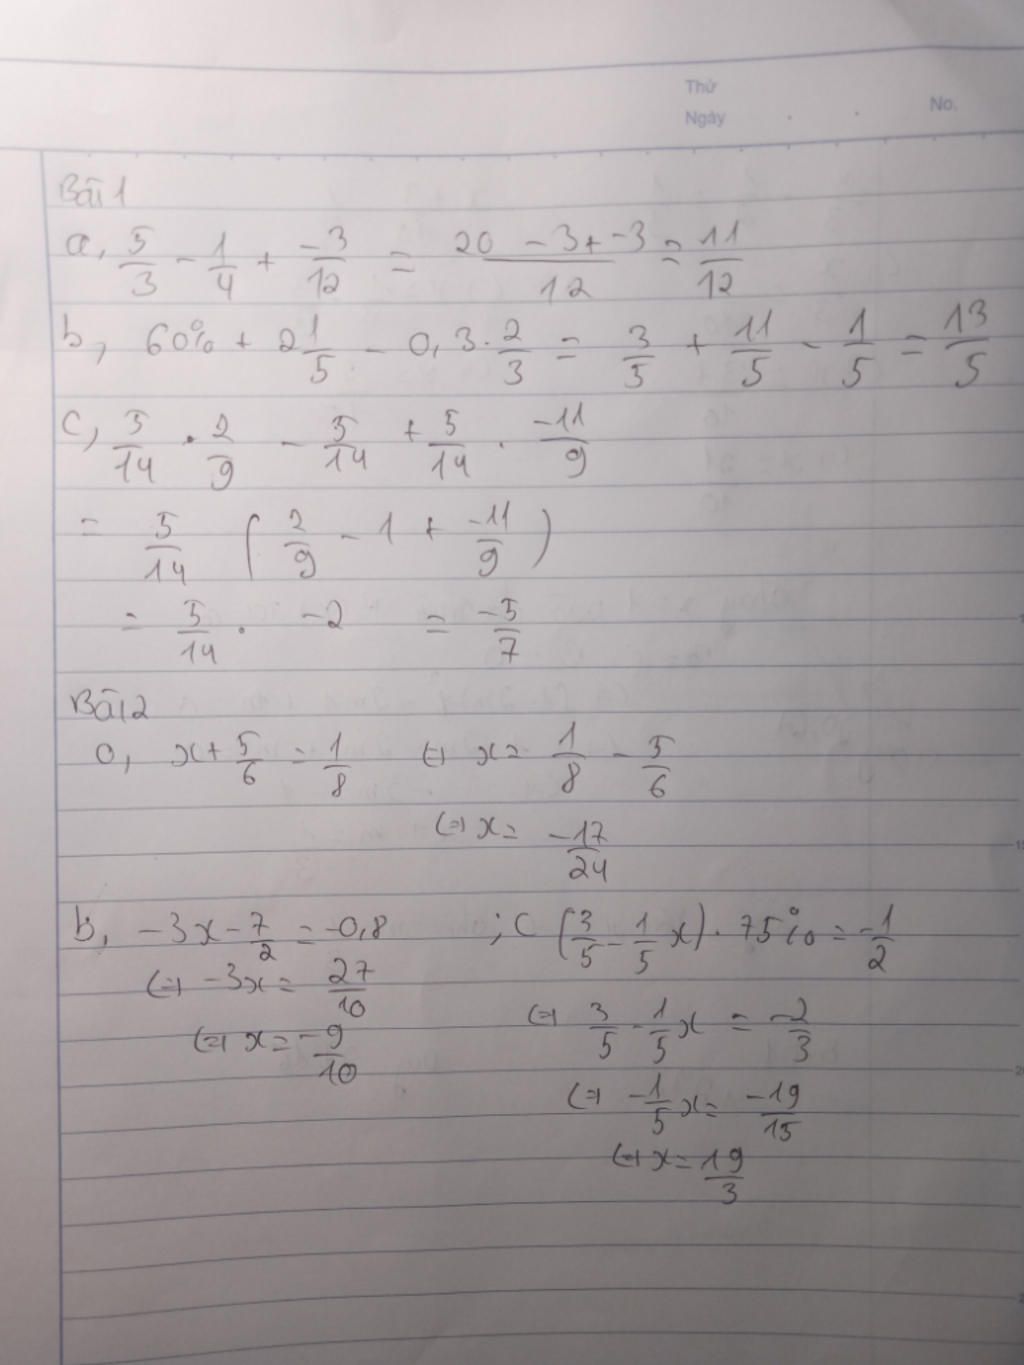 Thứ
Ngày . . No.
Bài 1
a, 5/3 - 1/4 + -3/12 = (20 - 3 + -3)/12 = 11/12
b, 60% + 2 1/5 - 0,3 . 2/3 = 3/5 + 11/5 - 1/5 = 13/5
c, 5/14 . 2/9 - 5/14 + 5/14 . -11/9
= 5/14 (2/9 - 1 + -11/9)
= 5/14 . -2 = -5/7
Bài 2
a, x + 5/6 = 1/8 (=) x = 1/8 - 5/6
(=) x = -17/24
b, -3x - 7/2 = -0,8 ; C (3/5 - 1/5 x) . 75% = -1/2
(=) -3x = 27/10
(=) 3/5 - 1/5 x = -2/3
(=) x = -9/10
(=) -1/5 x = -19/15
(=) x = 19/3